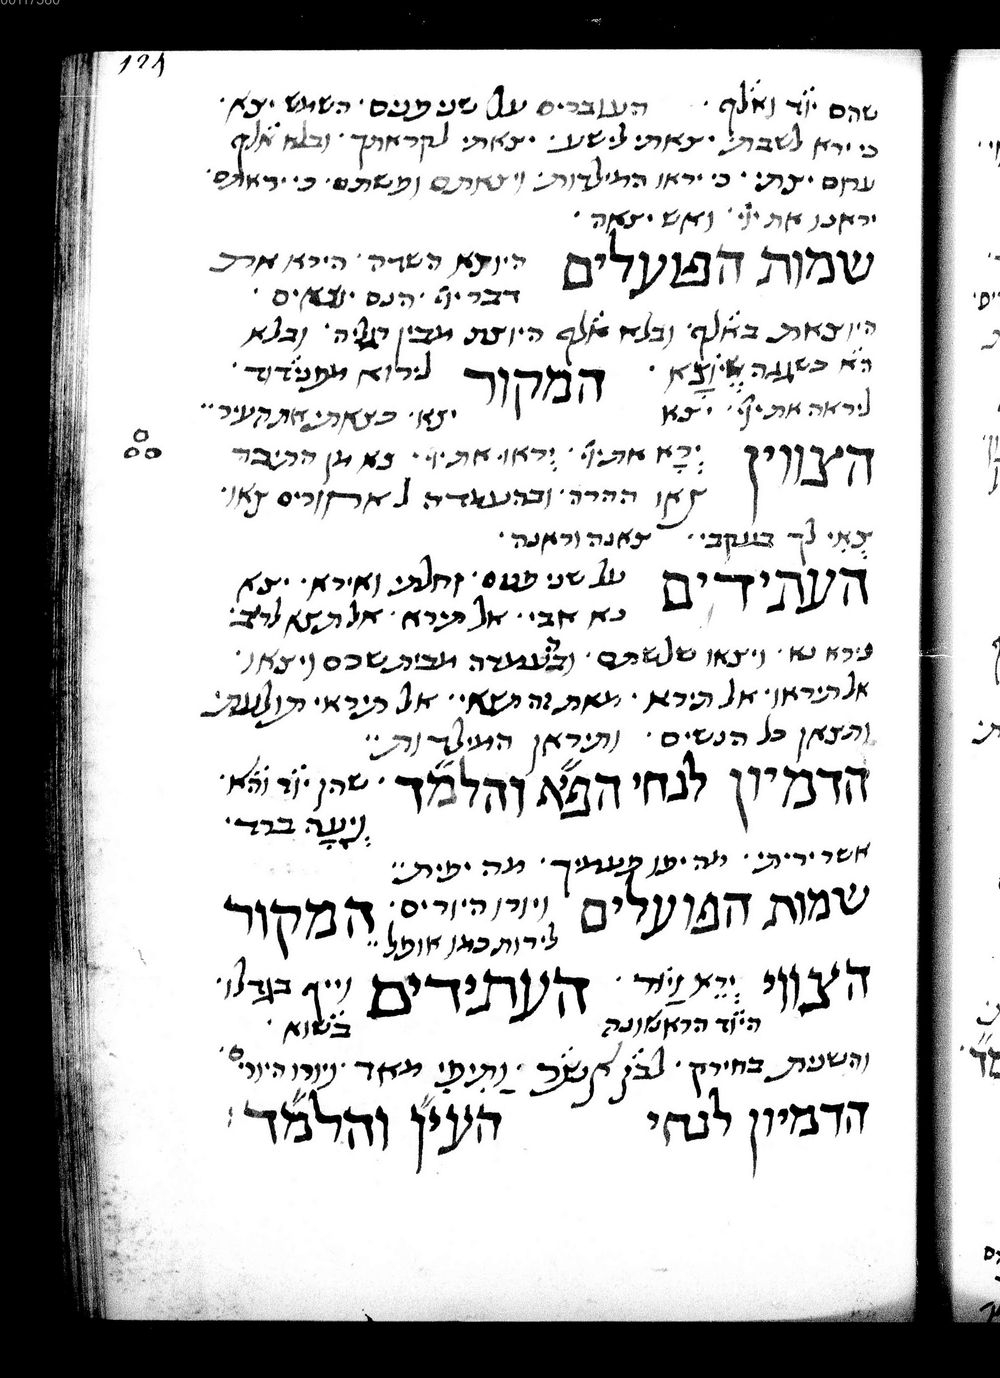 121
שהם יוד ואלף · העוברים על שני פנים · השמש יצא ·
כי ירא לשבת · יצאתי לישע · יצאתי לקראתך · ובלא אלף
ערום יצתי · כי יראו המילדות · ויצאתם ופשתם · כי יראתם ·
יראנו את ייי · ואש יצאה ·
שמות הפועלים היוצא השדה · הירא את
דבר ייי · הנם יוצאים ·
היוצאת באלף · ובלא אלף היוצת מבין רגליה · ובלא
הא כשגגה שיוצא · המקור לירוא מפני דוד ·
ליראה את ייי · יצא יצוא · כצאתי את העיר
הצווין ירא את ייי · יראו את ייי · צא מן התיבה
צאו ההרה · ובהעמדה לאחורים צאו ·
צאי לך בעקבי · צאנה וראנה ·
העתידים על שני פנים · זחלתי ואירא · יצא
נא אבי · אל תירא · אל תצא לריב ·
נירא נא · ויצאו שלשתם · ובהעמדה מבית שכם ויצאו ·
אל תיראו · אל תירא · מאת זה תצאי · אל תיראי תולעת ·
ותצאן כל הנשים · ותיראן המילדות
הדמיון לנחי הפא והלמד · שהן יוד והא ·
ויעה ברד ·
אשר יריתי · מה יפו פעמיך · מה יפית
שמות הפועלים ויורו היורים · המקור
לירות כמו אופל
הצווי ירא ויור · העתידים וייף בגדלו ·
היוד הראשונה בשוא ·
והשנית בחירק · ותיפי מאד · ויורו היורים ·
הדמיון לנחי העין והלמד